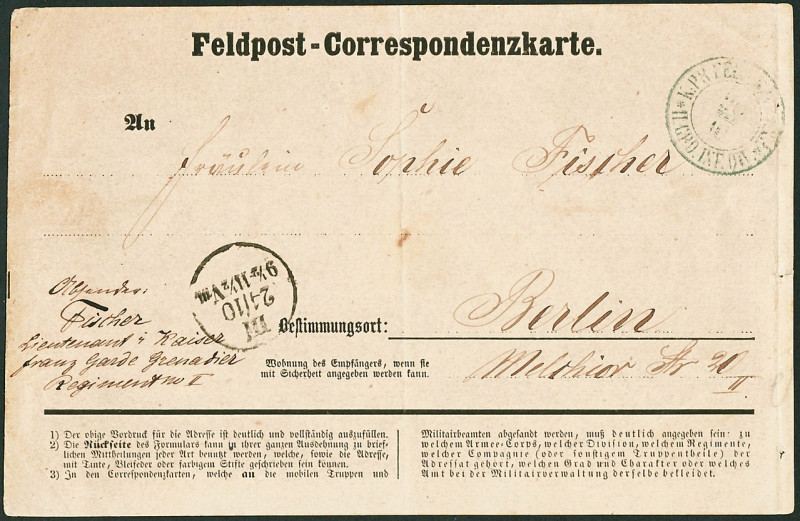 Feldpost-Correspondenzkarte.
An
Fräulein Sophie Fischer
Absender:
Fischer
Lieutenant i Kaiser
franz Garde Grenadier
Regiment no II
III
24/10
9½-11½Vm.
Bestimmungsort:
Berlin
Wohnung des Empfängers, wenn sie
mit Sicherheit angegeben werden kann.
Melchior Str 20
II
1) Der obige Vordruck für die Adresse ist deutlich und vollständig auszufüllen.
2) Die Rückseite des Formulars kann in ihrer ganzen Ausdehnung zu brief-
lichen Mittheilungen jeder Art benutzt werden, welche, sowie die Adresse,
mit Tinte, Bleifeder oder farbigem Stifte geschrieben sein können.
3) In den Correspondenzkarten, welche an die mobilen Truppen und
Militairbeamten abgesandt werden, muß deutlich angegeben sein: zu
welchem Armee-Corps, welcher Division, welchem Regimente,
welcher Compagnie (oder sonstigem Truppentheile) der
Adressat gehört, welchen Grad und Charakter oder welches
Amt bei der Militairverwaltung derselbe bekleidet.